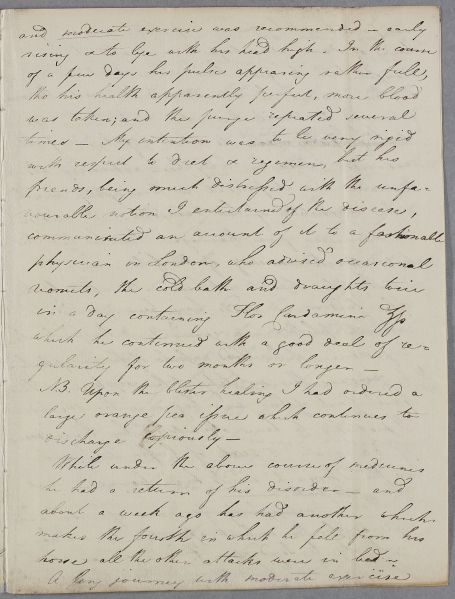 and moderate exercise was recommended – early
rising & to lye with his head high. In the course
of a few days his pulse appearing rather full,
tho his health apparently perfect, more blood
was taken, and the purge repeated several
times – My intention was to be very rigid
with respect to Diet & regimen, but his
friends, being much distressed with the unfa-
vourable notion I entertained of the disease,
communicated an account of it to a fashionable
physician in London, who advised occasional
vomits, the cold bath and draughts twice
in a day containing Flor Cardamine
which he continued with a good deal of re-
gularity for two months or longer –
NB. Upon the blister healing I had ordered a
large orange pea issue which continues to
discharge copiously –
While under the above course of medicines
he had a return of his disorder – and
about a week ago has had another which
makes the fourth in which he fell from his
horse all the other attacks were in bed –
A long journey with moderate exercise